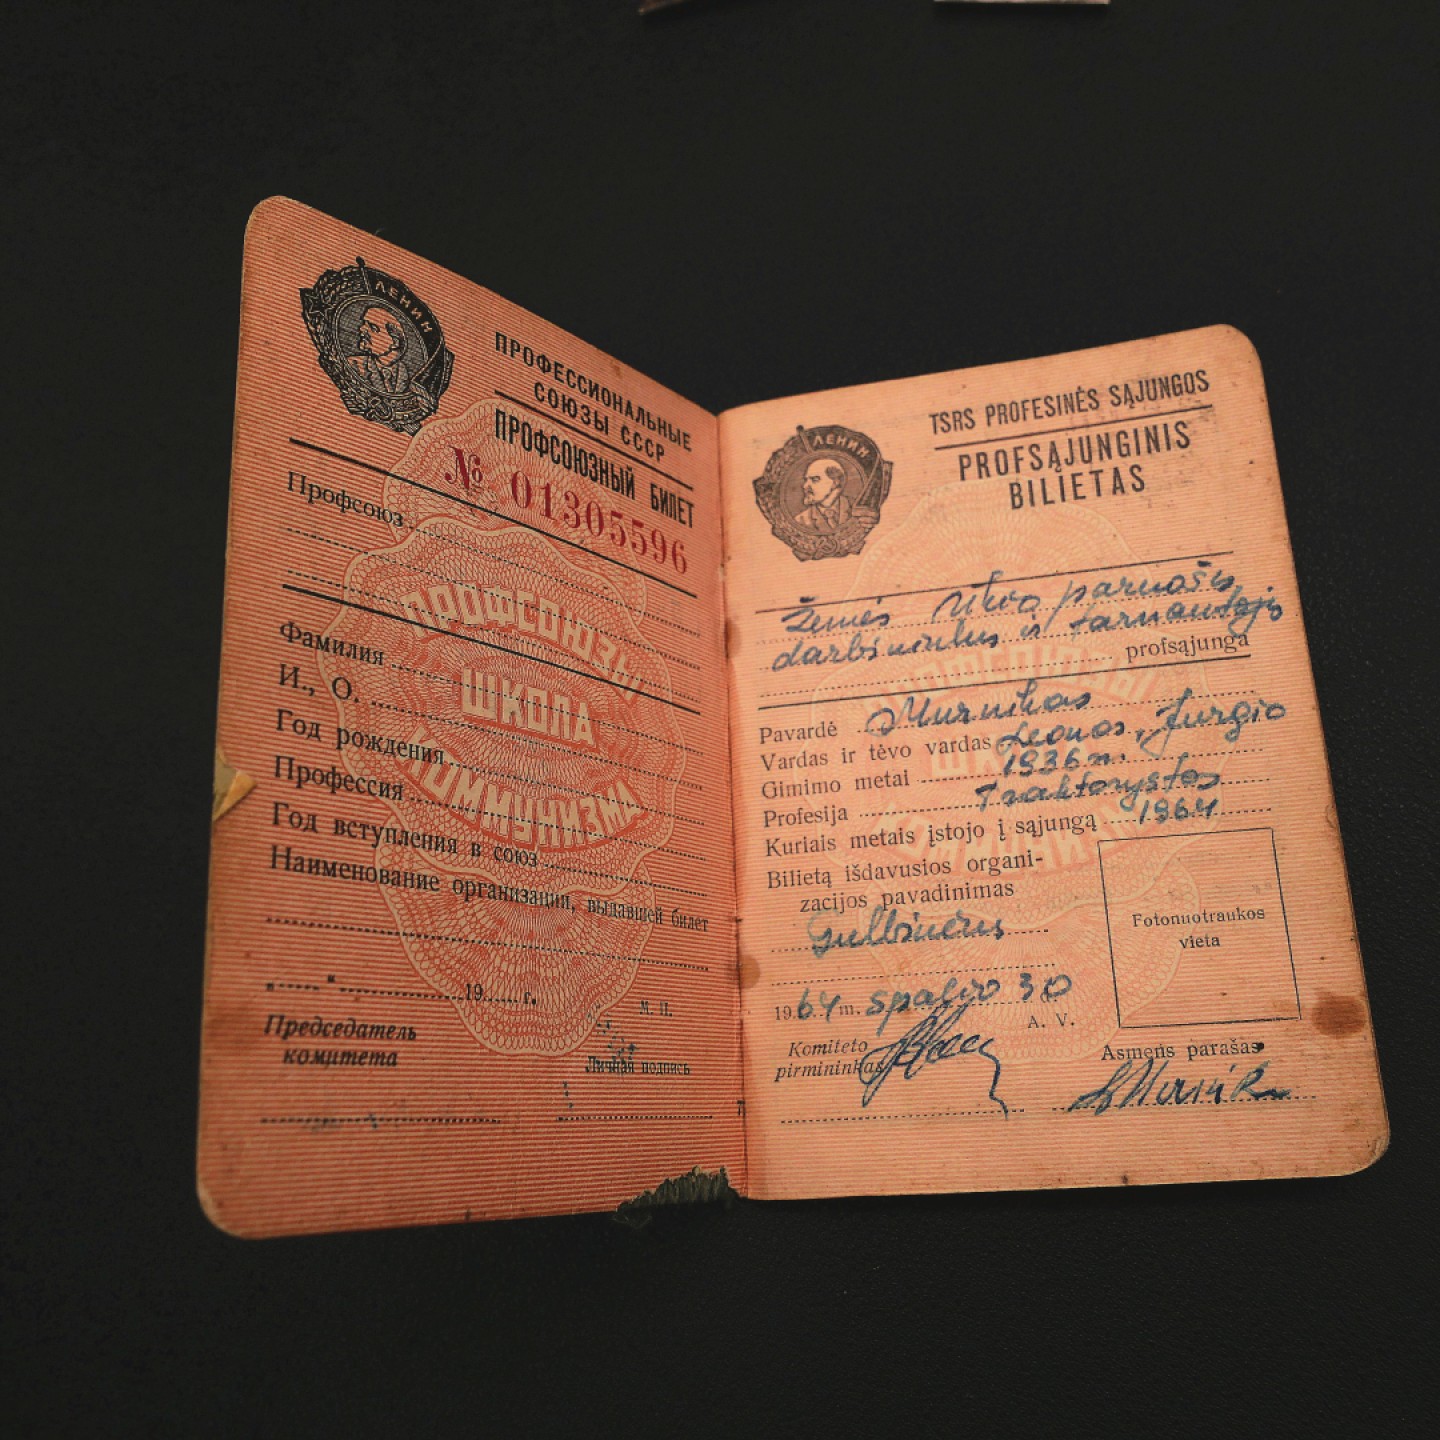 ЛЕНИН
ПРОФЕССИОНАЛЬНЫЕ
СОЮЗЫ СССР
ПРОФСОЮЗНЫЙ БИЛЕТ
№ 01305596
Профсоюз
ПРОФСОЮЗЫ
ШКОЛА
КОММУНИЗМА
Фамилия
И., О.
Год рождения
Профессия
Год вступления в союз
Наименование организации, выдавшей билет
„ “ 19 г.
М. П.
Председатель
комитета
Личная подпись
ЛЕНИН
TSRS PROFESINĖS SĄJUNGOS
PROFSĄJUNGINIS
BILIETAS
Žemės ūkio paruošų
darbininkų ir tarnautojų
profsąjunga
ПРОФСОЮЗЫ
ШКОЛА
Pavardė Murnikas
Vardas ir tėvo vardas Leonas, Jurgio
Gimimo metai 1936 m.
Profesija Traktorystas
Kuriais metais įstojo į sąjungą 1964
Bilietą išdavusios organi-
zacijos pavadinimas
Fotonuotraukos
vieta
1964 m. spalio 30 d.
A. V.
Komiteto
pirmininkas
Asmens parašas